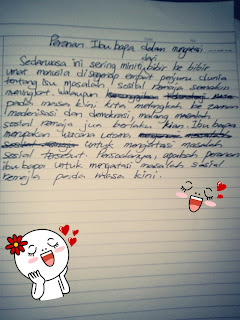 Peranan Ibu bapa dalam mengatasi
Sedarwasa ini sering meniti dari bibir ke bibir
umat manusia di segenap empat penjuru dunia
tentang isu masalah sosial remaja semakin
meningkat. Walaupun
pada masa kini kita melangkah ke zaman
modenisasi dan demokrasi, malang masalah
sosial remaja jua berlaku kian. Ibu bapa
merupakan wacana utama
untuk mengatasi masalah
sosial tersebut. Persoalannya, apakah peranan
ibu bapa untuk mengatasi masalah sosial
remaja pada masa kini.